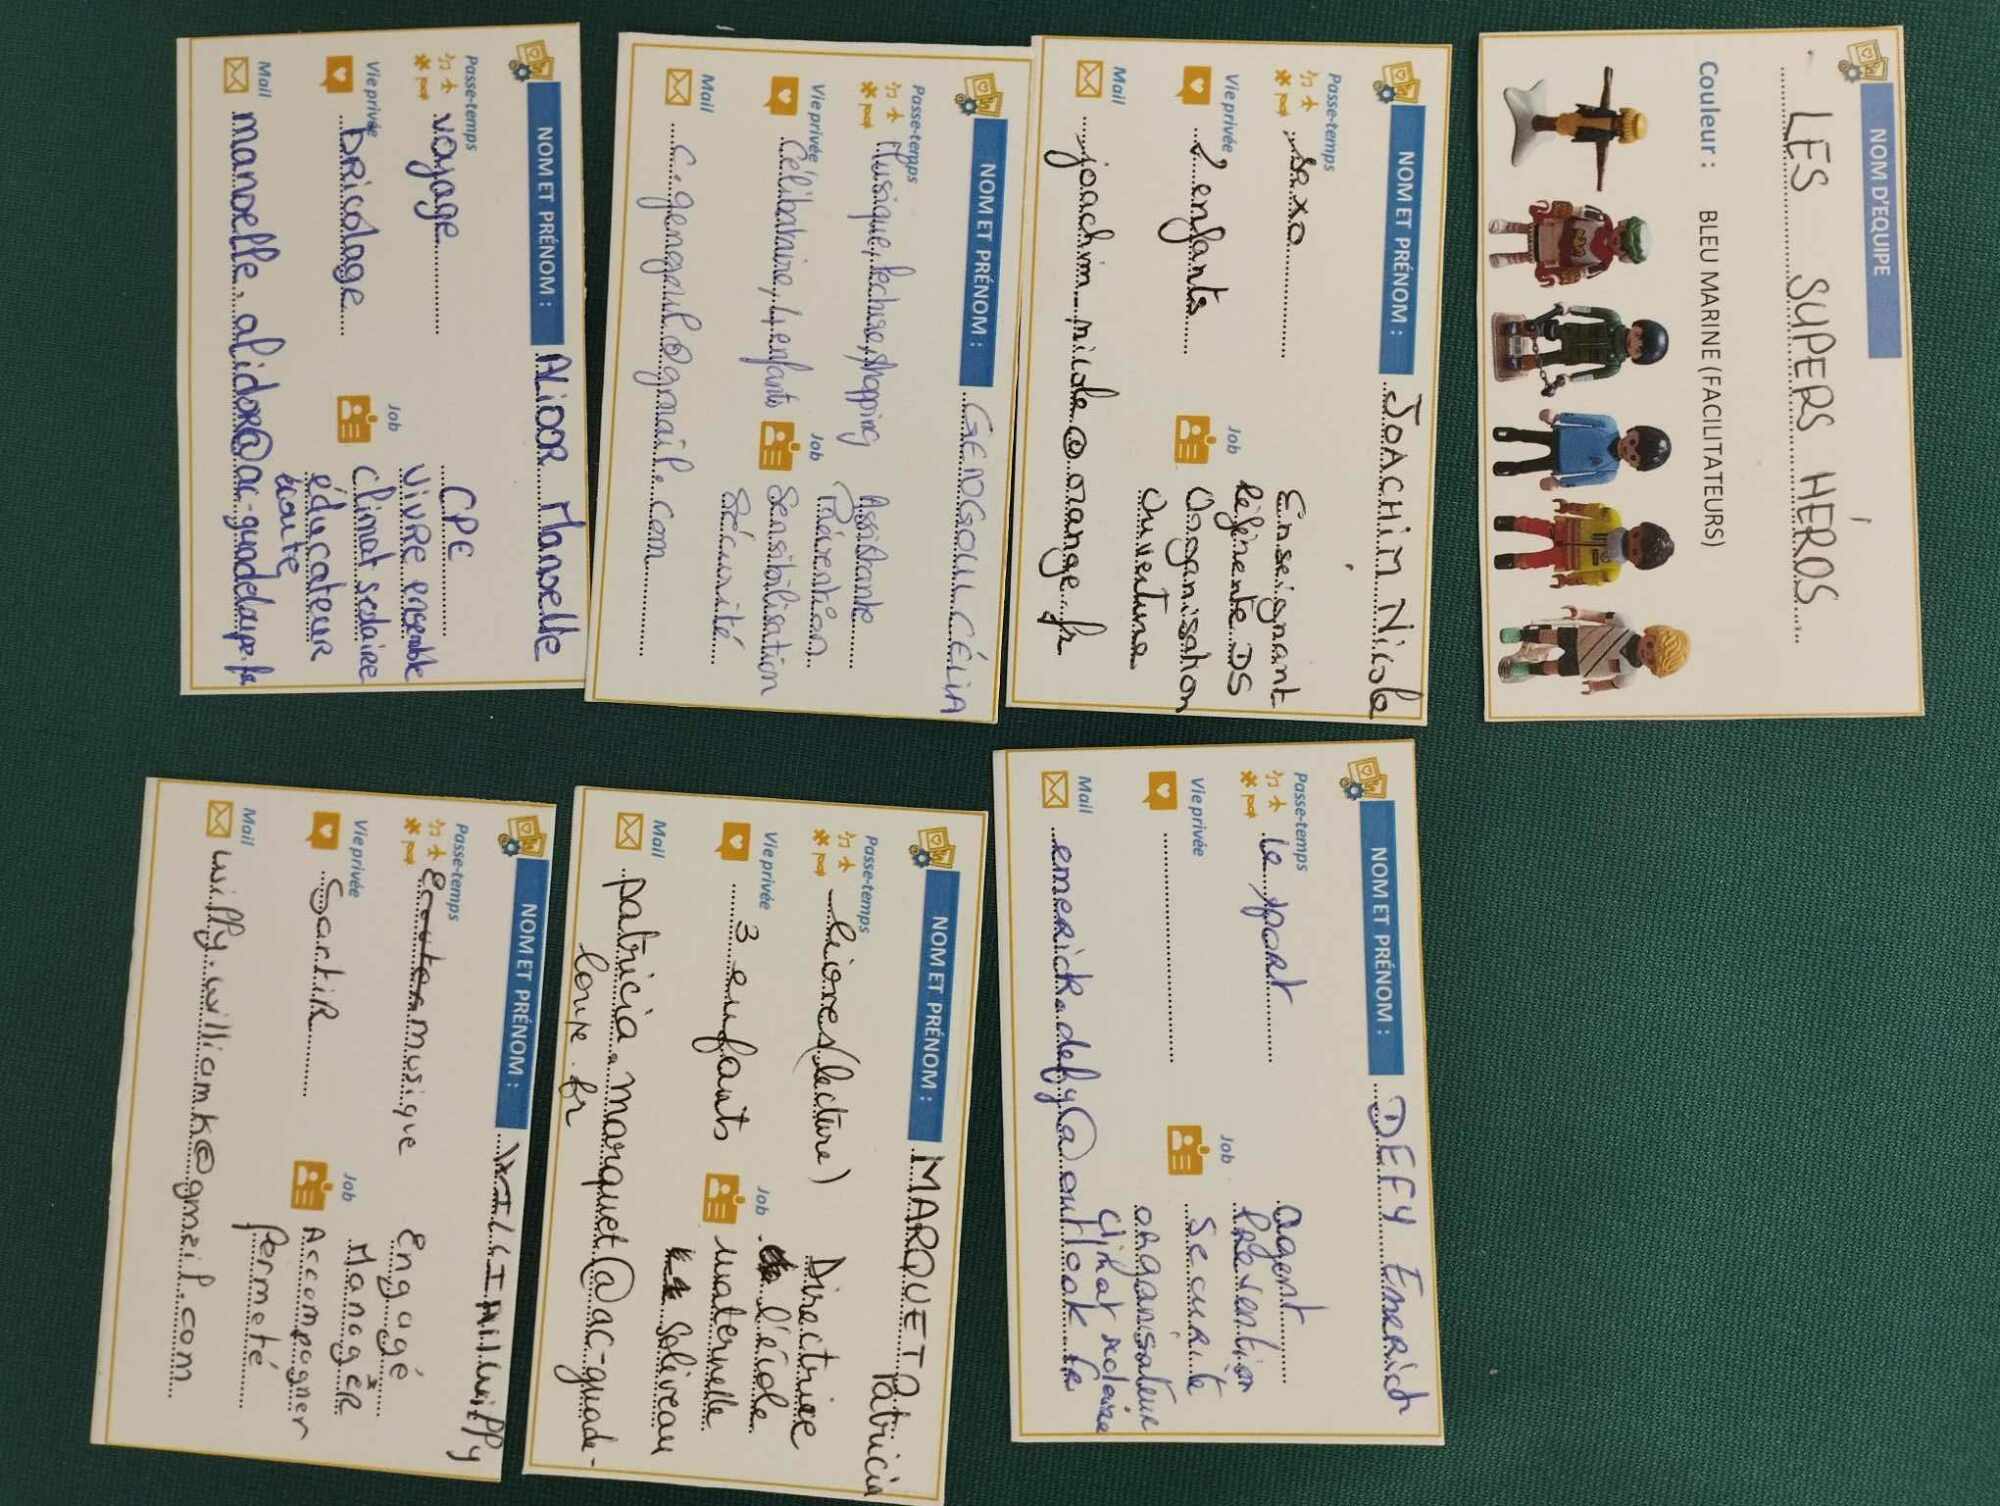 NOM D'EQUIPE
LES SUPERS HÉROS
Couleur : BLEU MARINE (FACILITATEURS)
NOM ET PRÉNOM : JOACHIM Nicole
Passe-temps
saxo
Vie privée
2 enfants
Job
Enseignant
Référente DS
Organisation
Ouverture
Mail
joachim.nicole@orange.fr
NOM ET PRÉNOM : GENGOUL CÉLIA
Passe-temps
Musique, lecture, shopping
Vie privée
Célibataire, 4 enfants
Job
Assistante
Prévention
Sensibilisation
Sécurité
Mail
c.gengoul@gmail.com
NOM ET PRÉNOM : ALIDOR Manoelle
Passe-temps
voyage
Vie privée
BRicolage
Job
CPE
ViVRE ensemble
Climat scolaire
éducateur
écoute
Mail
manoelle.alidor@ac-guadeloupe.fr
NOM ET PRÉNOM : DEFY Emerick
Passe-temps
le sport
Vie privée
Job
agent
prévention
sécurité
organisateur
climat scolaire
Mail
emerick.defy@outlook.fr
NOM ET PRÉNOM : MARQUET Patricia
Passe-temps
livres (lecture)
Vie privée
3 enfants
Job
Directrice
l'école
maternelle
Soliveau
Mail
patricia.marquet@ac-guade-
loupe.fr
NOM ET PRÉNOM : Willy
Passe-temps
musique
Vie privée
SortiR
Job
Engagé
ManagER
Accompagner
Fermeté
Mail
willy.williamk@gmail.com